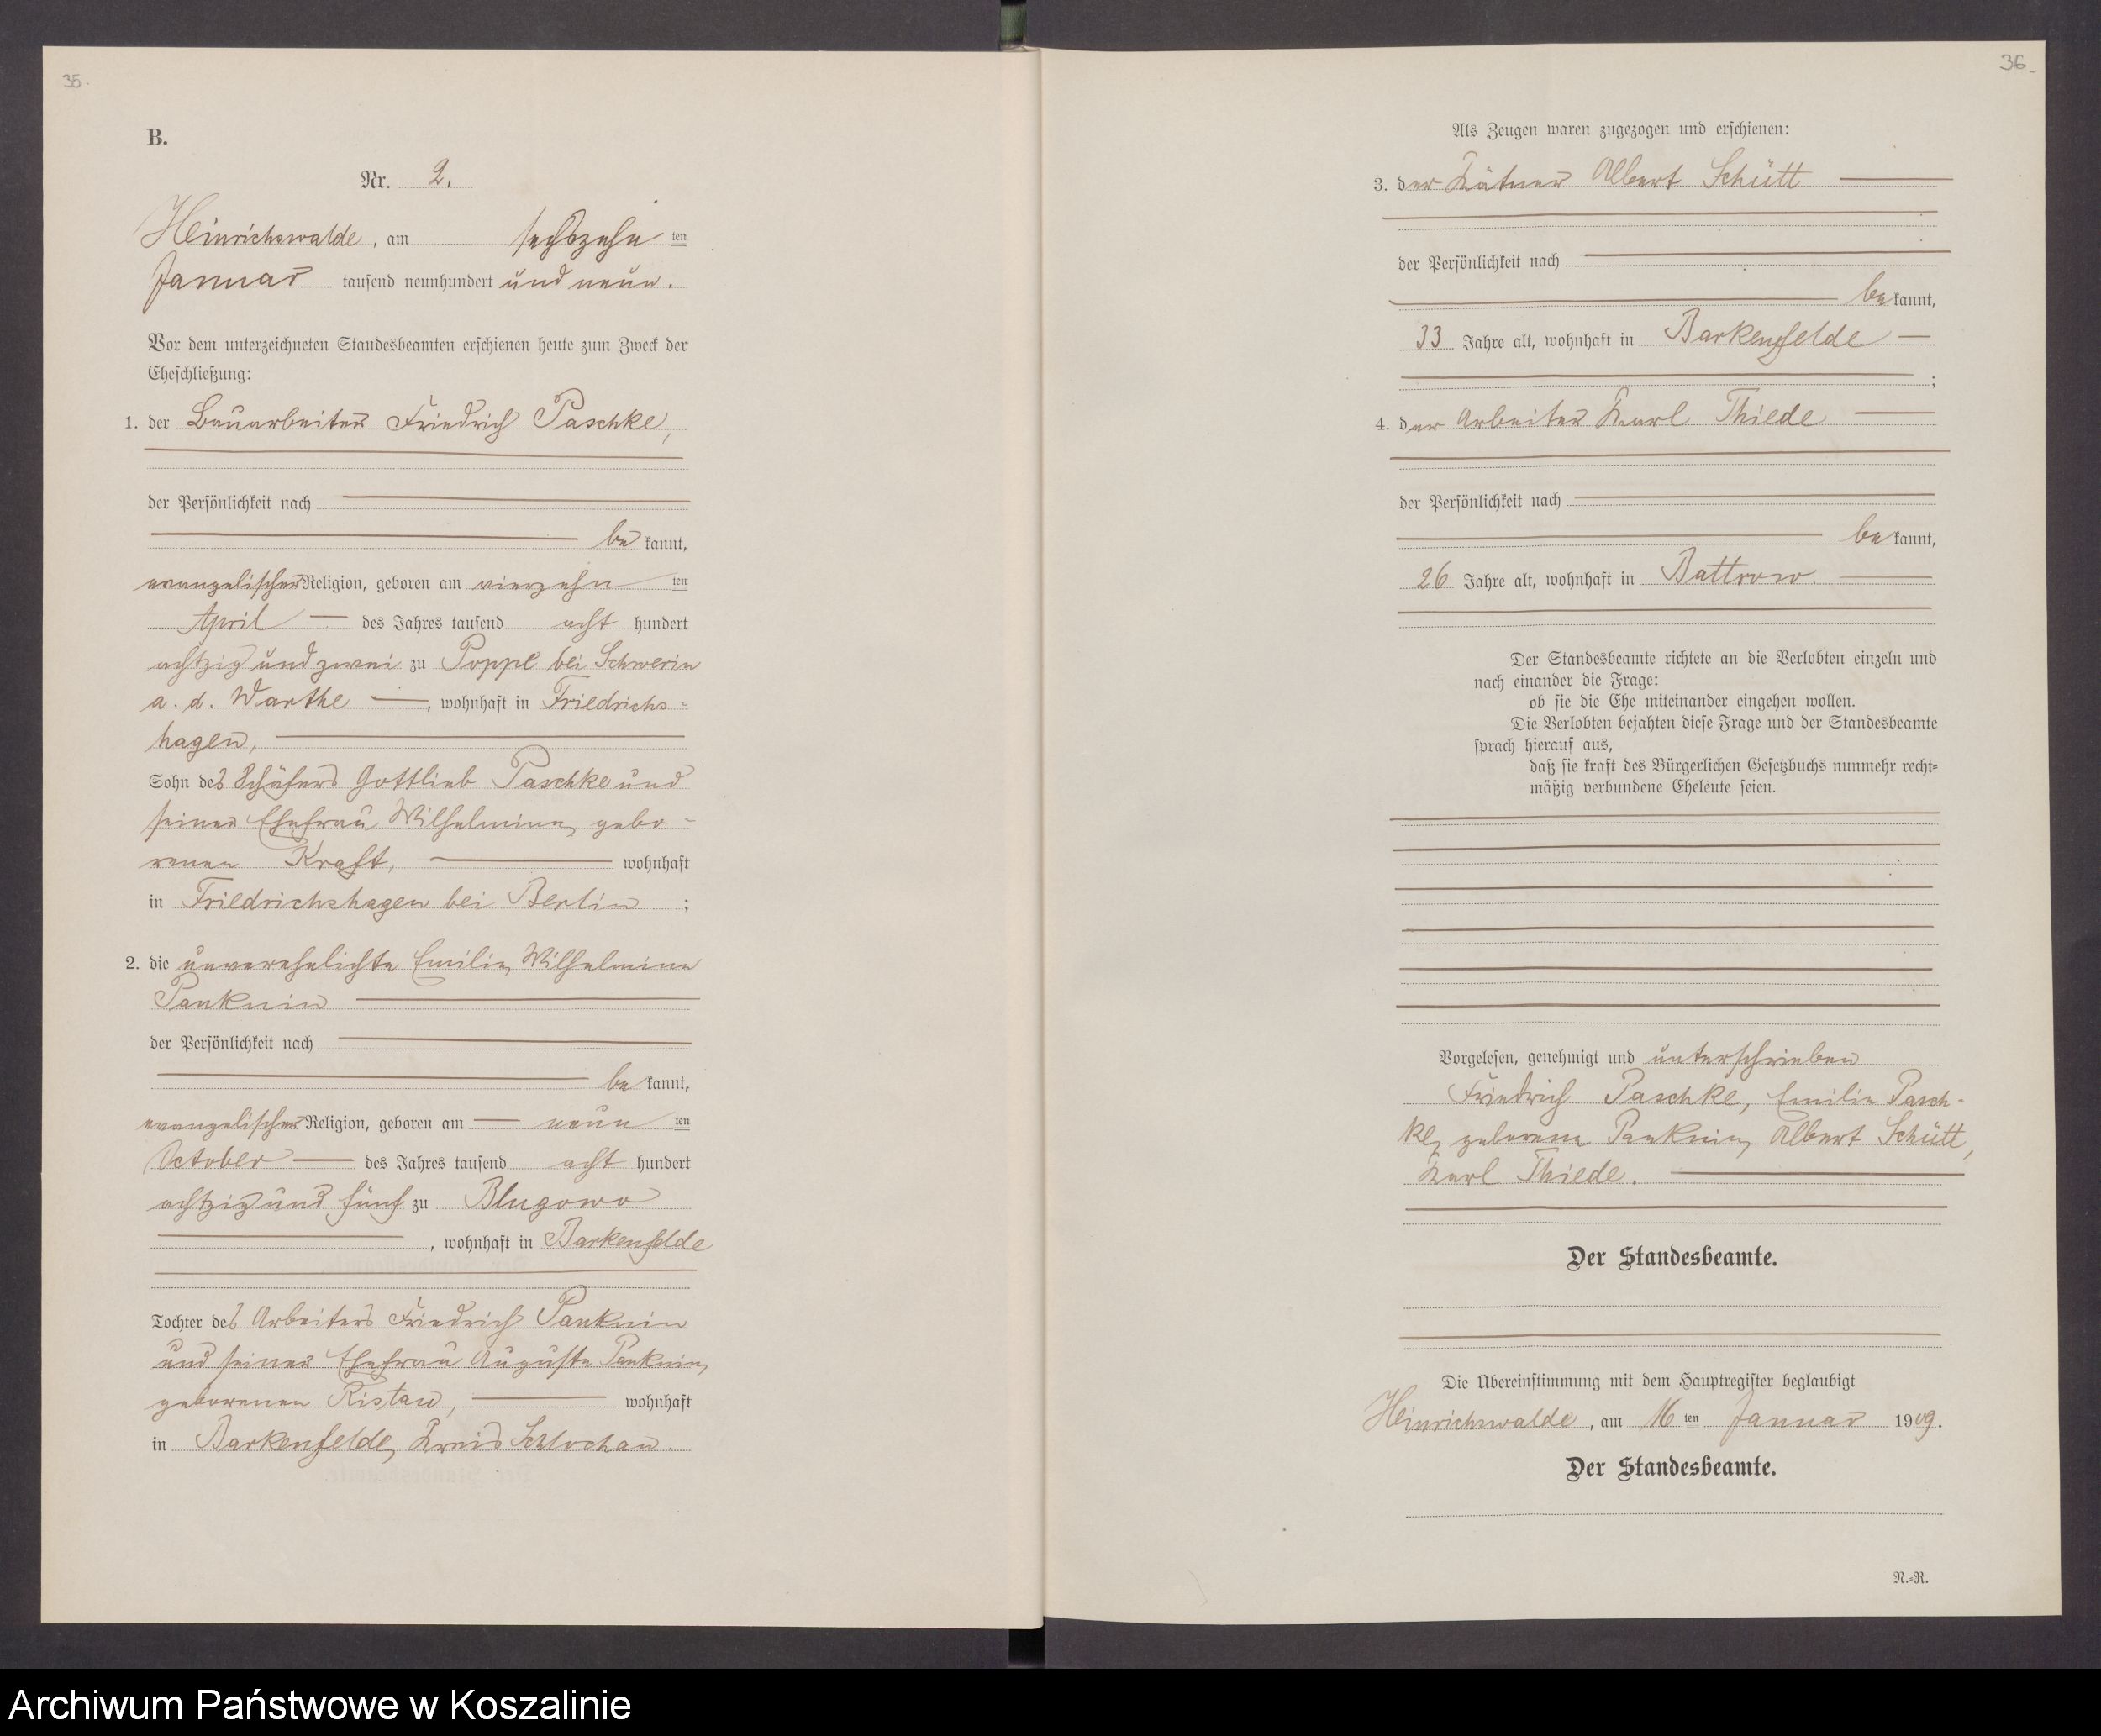 35.
B.
Nr. 2.
Heinrichswalde, am sechszehn ten
Januar tausend neunhundert und neun.
Vor dem unterzeichneten Standesbeamten erschienen heute zum Zweck der
Eheschließung:
1. der Bauarbeiter Friedrich Paschke,
der Persönlichkeit nach
be kannt,
evangelischer Religion, geboren am vierzehn ten
April des Jahres tausend acht hundert
achtzig und zwei zu Poppe bei Schwerin
a. d. Warthe, wohnhaft in Friedrichs-
hagen,
Sohn des Schäfers Gottlieb Paschke und
seiner Ehefrau Wilhelmine, gebo-
renen Kraft, wohnhaft
in Friedrichshagen bei Berlin ;
2. die unverehelichte Emilie, Wilhelmine
Panknin
der Persönlichkeit nach
be kannt,
evangelischer Religion, geboren am neun ten
October des Jahres tausend acht hundert
achtzig und fünf zu Blugowo
, wohnhaft in Barkenfelde
Tochter des Arbeiters Friedrich Panknin
und seiner Ehefrau Auguste Panknin,
geborenen Ristau, wohnhaft
in Barkenfelde, Kreis Schlochau.
36.
Als Zeugen waren zugezogen und erschienen:
3. der Kätner Albert Schütt
der Persönlichkeit nach
be kannt,
33 Jahre alt, wohnhaft in Barkenfelde
;
4. der Arbeiter Karl Thiede
der Persönlichkeit nach
be kannt,
26 Jahre alt, wohnhaft in Battrow.
Der Standesbeamte richtete an die Verlobten einzeln und
nach einander die Frage:
ob sie die Ehe miteinander eingehen wollen.
Die Verlobten bejahten diese Frage und der Standesbeamte
sprach hierauf aus,
daß sie kraft des Bürgerlichen Gesetzbuchs nunmehr recht-
mäßig verbundene Eheleute seien.
Vorgelesen, genehmigt und unterschrieben
Friedrich Paschke, Emilie Pasch-
ke, geborene Panknin, Albert Schütt,
Karl Thiede.
Der Standesbeamte.
Die Übereinstimmung mit dem Hauptregister beglaubigt
Heinrichswalde, am 16 ten Januar 1909.
Der Standesbeamte.
N.-R.
Archiwum Państwowe w Koszalinie